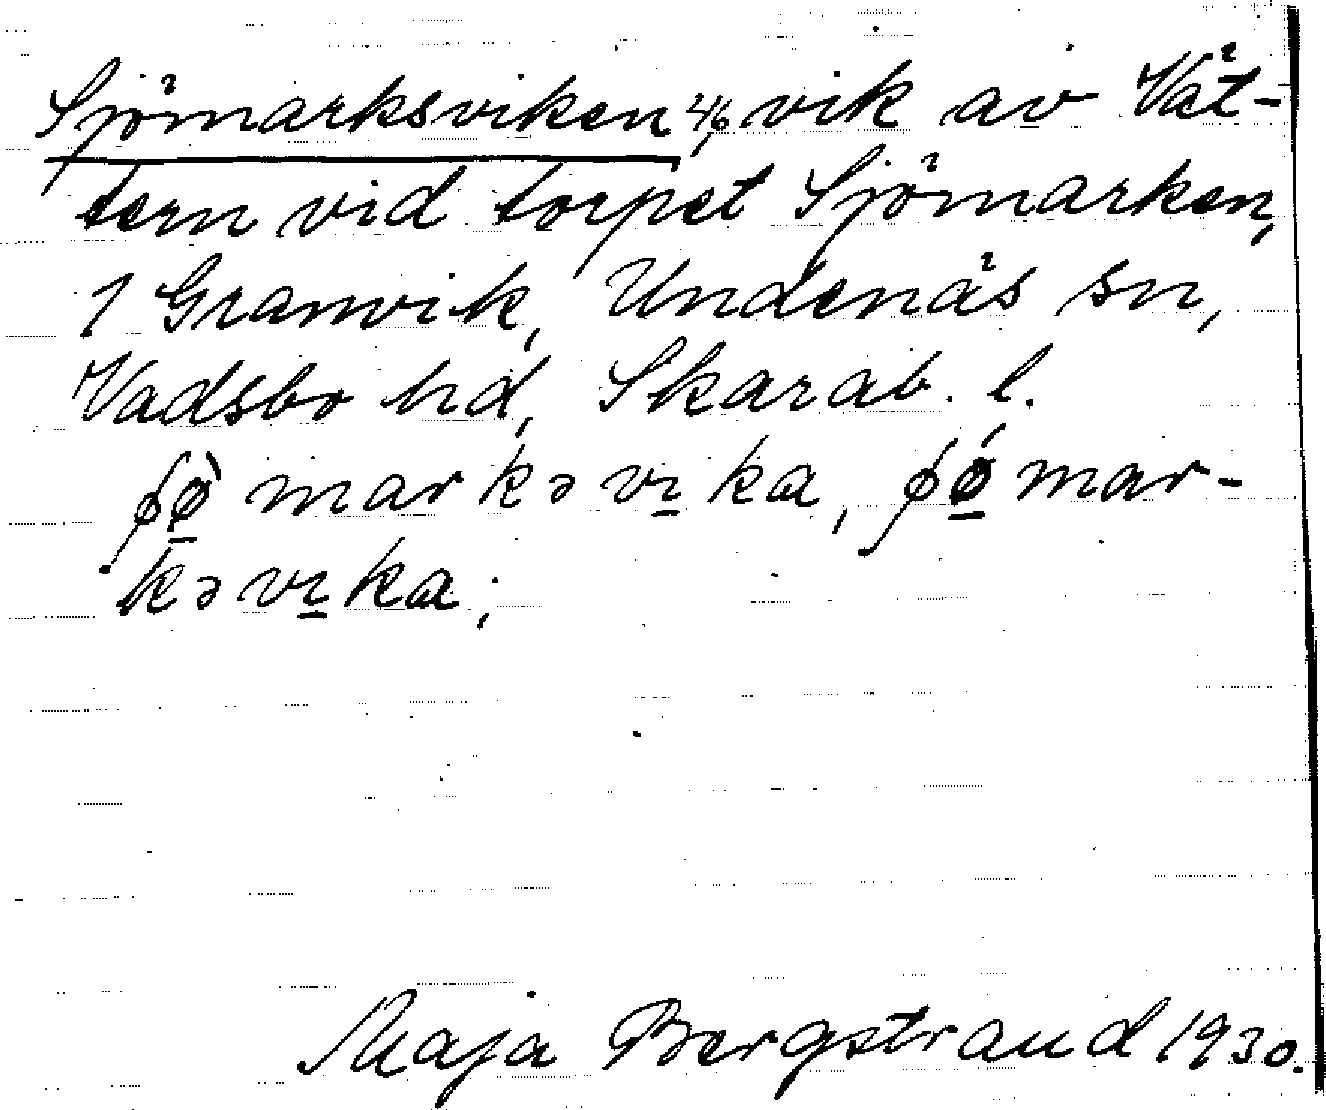 Sjömarksviken 4/6, vik av Vät-
tern vid torpet Sjömarken,
1 Granvik, Undenäs sn,
Vadsbo hd, Skarab. l.
markəvıka, mar-
kəvıka;
Maja Bergstrand 1930.